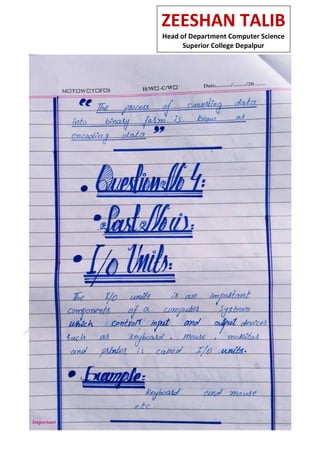 ZEESHAN TALIB
Head of Department Computer Science
Superior College Depalpur
M□T□W□T□F□S H/W□-C/W□ Date:____/____/20
“ The process of converting data
into binary form is know as
encoding data. ”
• Question No 4:
• Part No iv:
• I/O Units:
The I/O units is an important
components of a computer system
which controls input and output devices
such as keyboard, mouse, monitor
and printer is called I/O units.
• Example:
Keyboard and mouse
etc.
Important